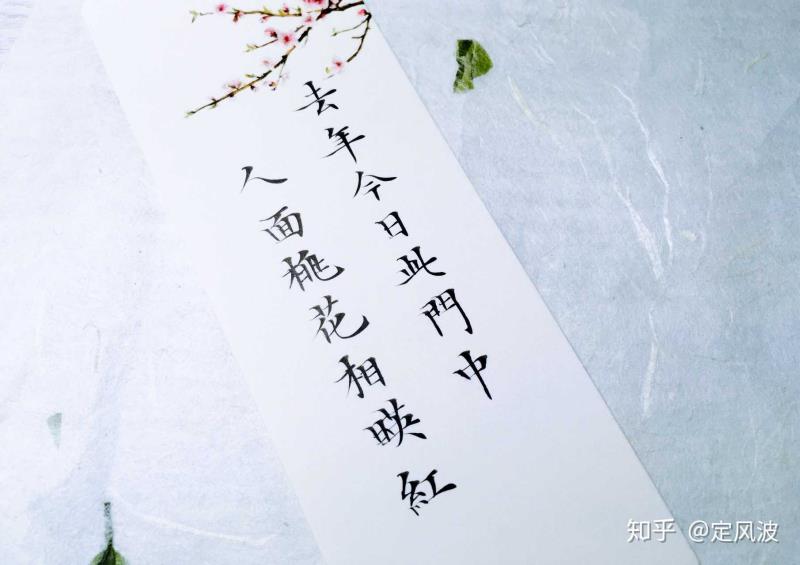 去年今日此門中
人面桃花相暎紅
知乎 @定风波